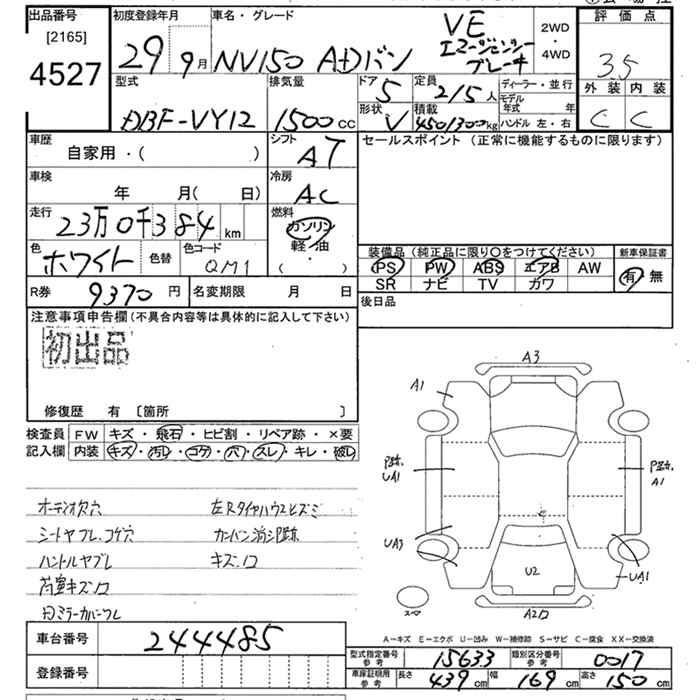 出品番号
[2165]
4527
初度登録年月
29 9月
車名・グレード
NV150 ADバン
VE
エマージェンシー
ブレーキ
2WD
・
4WD
評価点
3.5
外装 内装
C C
型式
DBF-VY12
排気量
1500cc
ドア
5
形状
V
定員
2/5人
積載
450/300kg
ディーラー・並行
モデル年式 年
ハンドル 左・右
車歴
自家用・( )
シフト
AT
セールスポイント (正常に機能するものに限ります)
車検
年 月( 日)
冷房
AC
走行
23万0千384km
燃料
ガソリン
軽・油
( ・ )
色
ホワイト
色替
色コード
QM1
装備品 (純正品に限り○をつけてください)
PS PW ABS エアB AW
SR ナビ TV カワ
新車保証書
有 無
R券 9370円
名変期限 月 日
後日品
注意事項申告欄(不具合内容等は具体的に記入して下さい)
初出品
修復歴 有 〔箇所 〕
検査員記入欄
FW キズ・飛石・ヒビ割・リペア跡・×要
内装 キズ・汚レ・コゲ・穴・スレ・キレ・破レ
オーディオ欠穴
シートヤブレ、コゲ穴
ハンドルヤブレ
荷室キズ、凹
左Rタイヤハウスヒズミ
カーバン消シ跡
キズ、凹
A3
A1
P跡、
UA1
P跡、
A1
UA3
U2
C
UA1
A2凹
A-キズ E-エクボ U-凹み W-補修跡 S-サビ C-腐食 XX-交換済
車台番号 244485
登録番号
型式指定番号 参考 15633
類別区分番号 参考 0017
車庫証明用 参考 長さ 439cm 幅 169cm 高さ 150cm